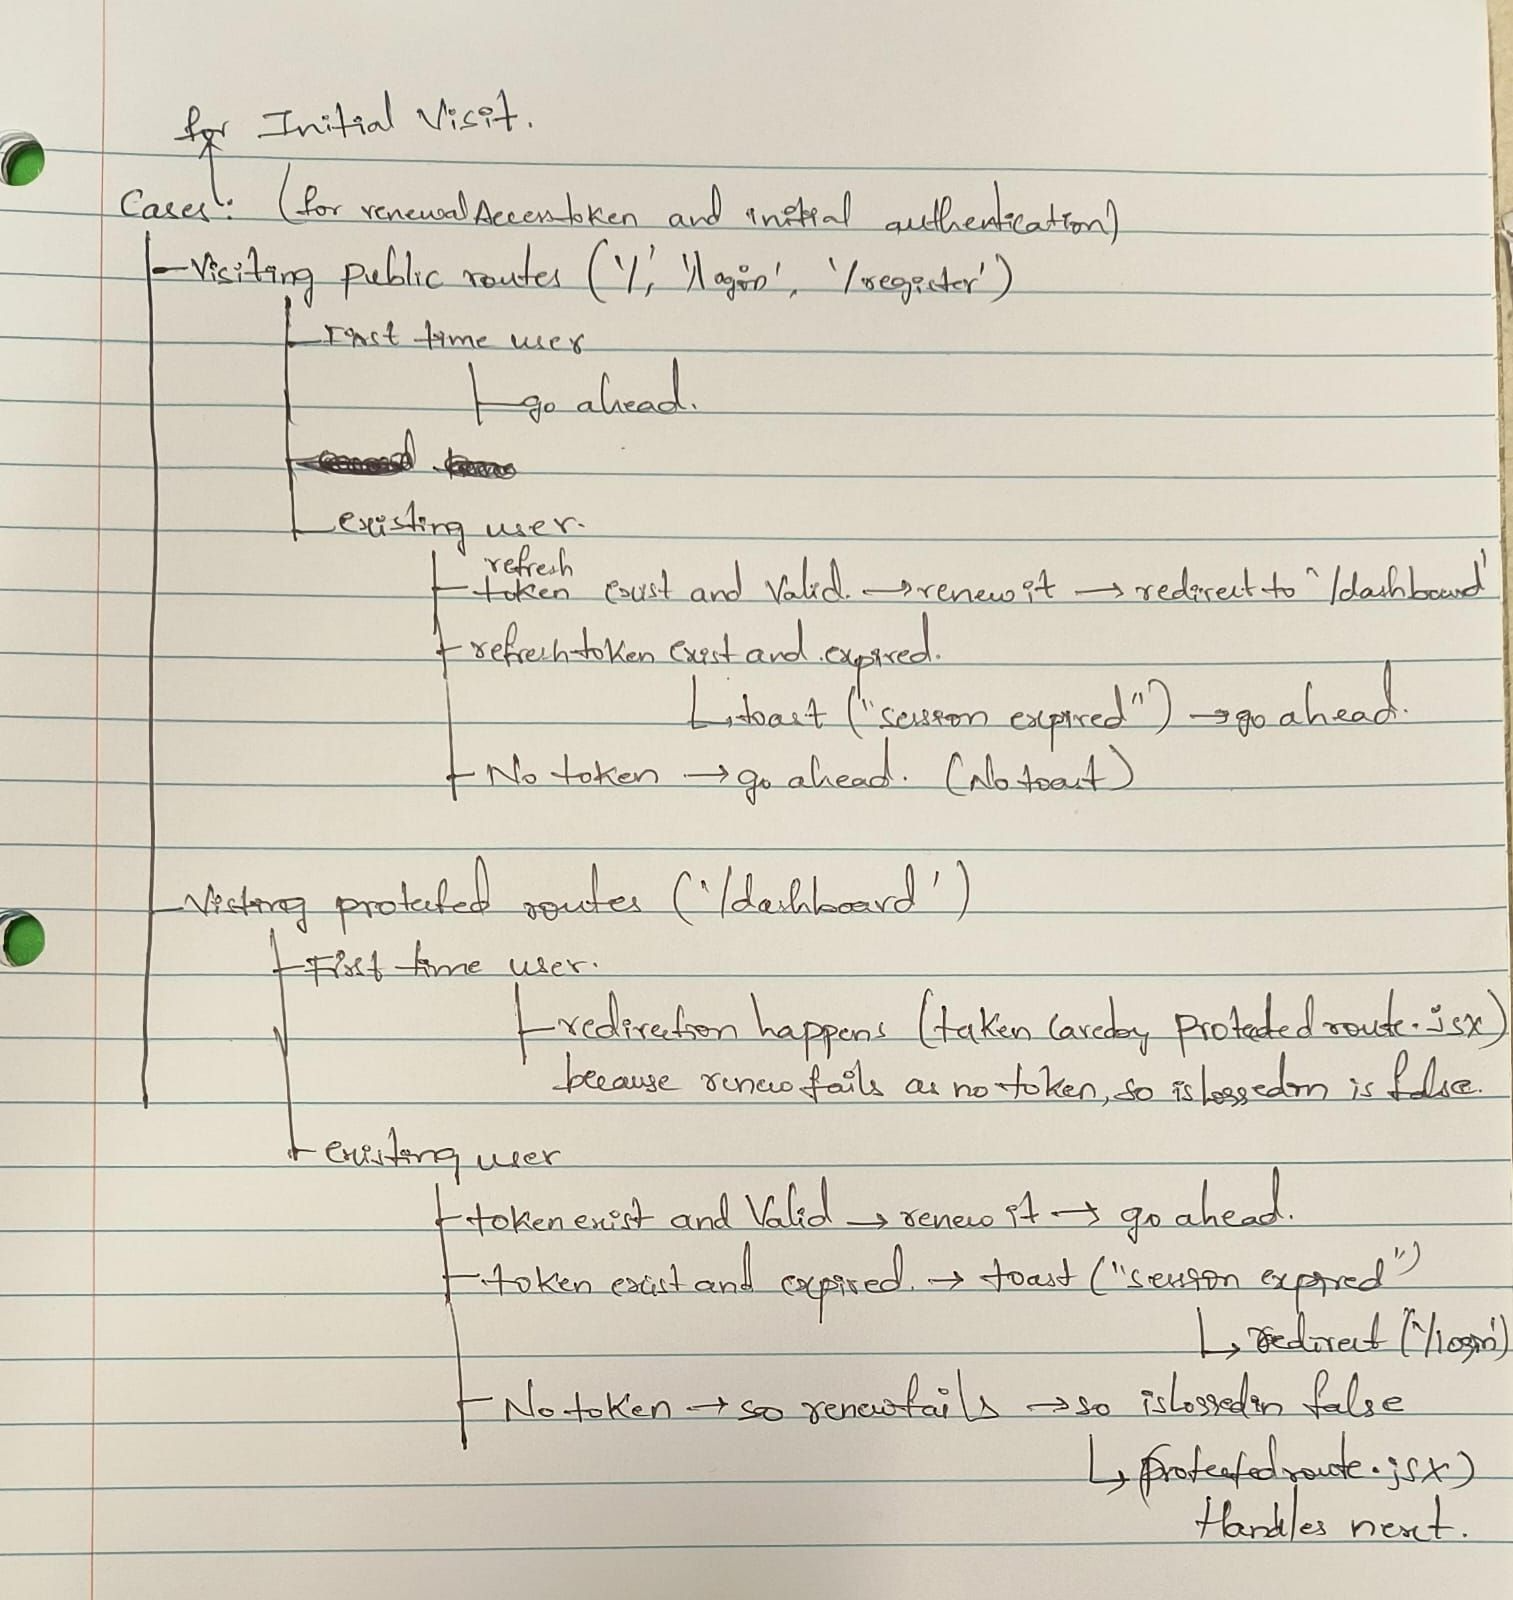 for Initial Visit.
Cases: (for renewalAccesstoken and initial authentication)
Visiting public routes ('/', '/login', '/register')
First time user
go ahead.
existing user.
refresh
token exist and Valid. → renew it → redirect to '/dashboard'
refresh token exist and expired.
↳ toast ("session expired") → go ahead.
No token → go ahead. (No toast)
Visiting protected routes ('/dashboard')
First time user.
redirection happens (taken care by Protected route.jsx)
because renew fails as no token, so isLoggedin is false.
existing user
token exist and Valid → renew it → go ahead.
token exist and expired. → toast ("session expired")
↳ redirect ('/login')
No token → so renew fails → so isLoggedin false
↳ protected route.jsx)
Handles next.